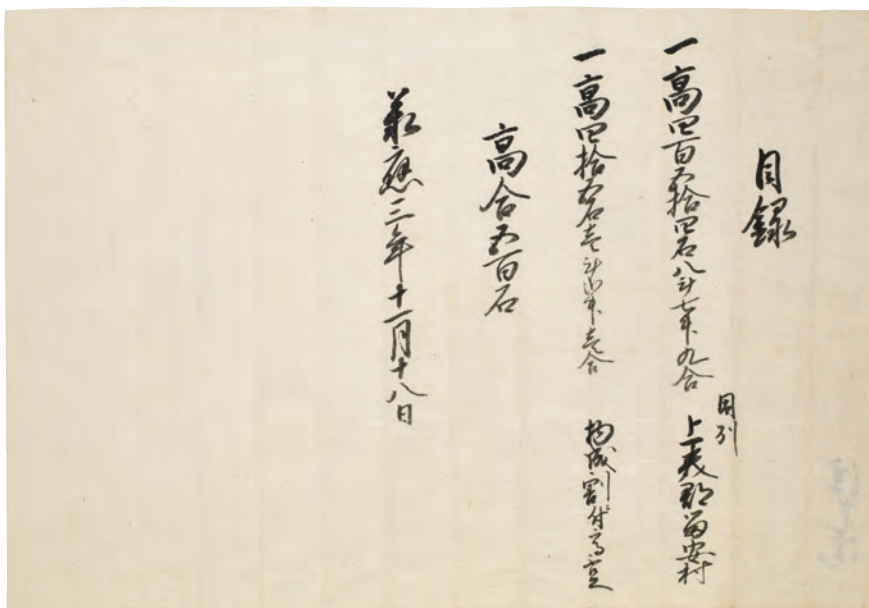 目録
一高四百五拾四石八斗七升九合 因州 邑美郡冨安村
一高四拾五石壱斗弐升壱合 物成割付高
高合五百石
承應三年十一月十八日